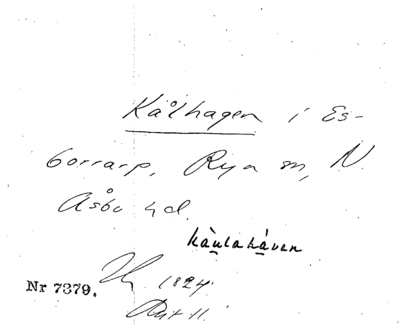 Kålhagen i Es-
borrarp, Rya sn, N.
Åsbo hd.
kàulahàven
1824.
Nr 7379.
Rut 11.